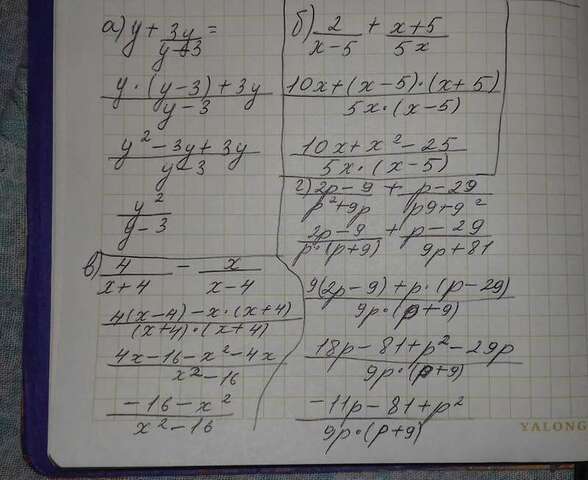 а) y + 3y/(y-3) =
(y·(y-3)+3y)/(y-3)
(y²-3y+3y)/(y-3)
y²/(y-3)
б) 2/(x-5) + (x+5)/(5x)
(10x+(x-5)·(x+5))/(5x·(x-5))
(10x+x²-25)/(5x·(x-5))
в) 4/(x+4) - x/(x-4)
(4(x-4)-x·(x+4))/((x+4)·(x+4))
(4x-16-x²-4x)/(x²-16)
(-16-x²)/(x²-16)
г) (2p-9)/(p²+9p) + (p-29)/(p9+9²)
(2p-9)/(p·(p+9)) + (p-29)/(9p+81)
(9(2p-9)+p·(p-29))/(9p·(p+9))
(18p-81+p²-29p)/(9p·(p+9))
(-11p-81+p²)/(9p·(p+9))
YALONG